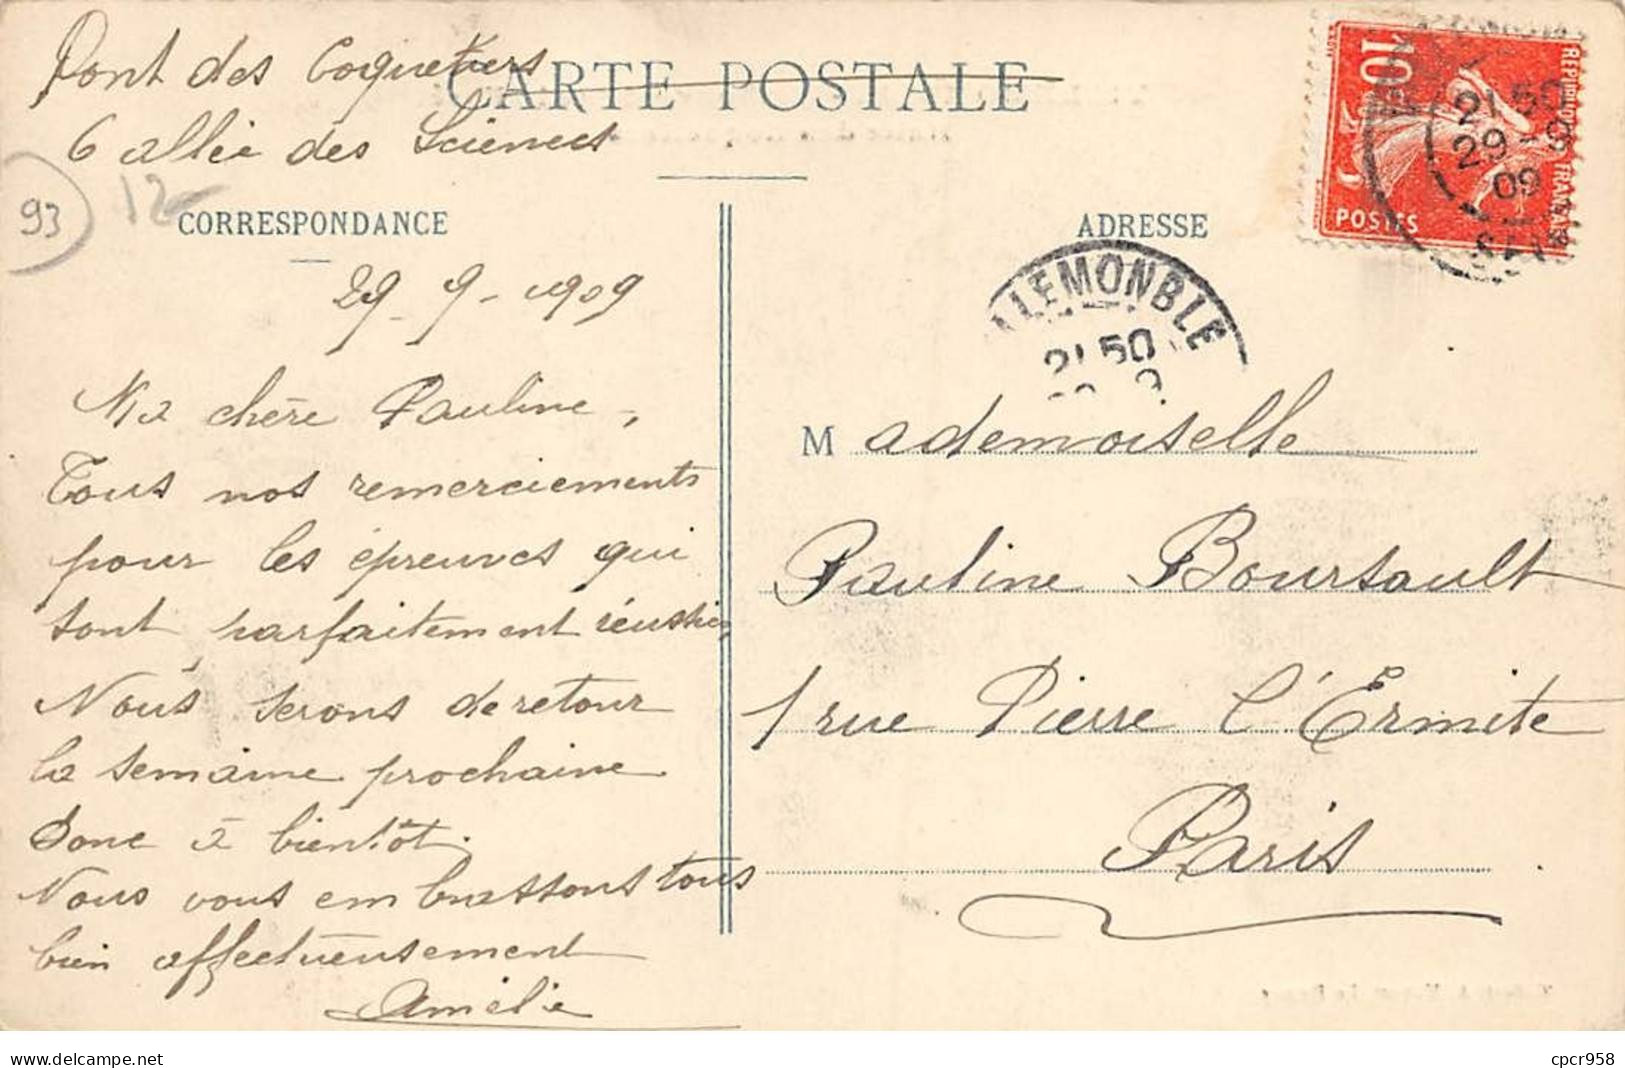 Pont des Coquetiers
CARTE POSTALE
6 allée des Sciences
93
12
CORRESPONDANCE
ADRESSE
10
REPUBLIQUE FRANÇAISE
POSTES
21 50
29 - 9
09
LEMONBLE
21 50
29-9-1909
Ma chère Pauline,
Tous nos remerciements
pour les épreuves qui
sont parfaitement réussies,
Nous serons de retour
la semaine prochaine
donc à bientôt.
Nous vous embrassons tous
bien affectueusement
Amélie
Mademoiselle
Pauline Boursault
1 rue Pierre l'Ermite
Paris
cpcr958